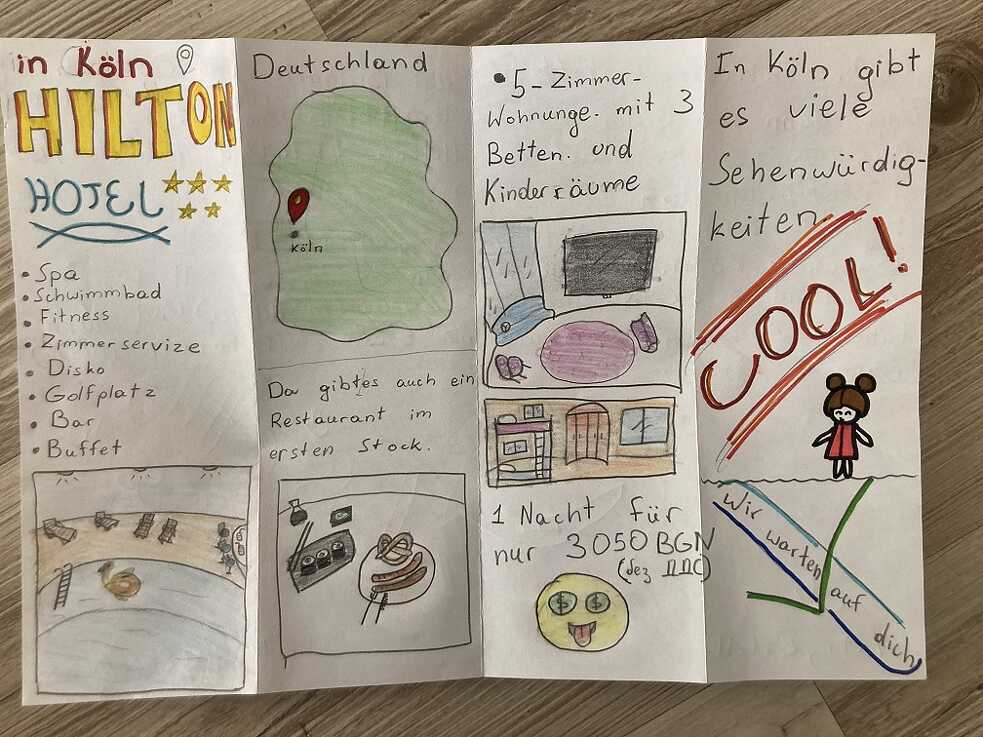 in Köln
HILTON
HOTEL
• Spa
• Schwimmbad
• Fitness
• Zimmerservize
• Disko
• Golfplatz
• Bar
• Buffet
Deutschland
Köln
Da gibtes auch ein
Restaurant im
ersten Stock.
• 5-Zimmer-
Wohnunge. mit 3
Betten. und
Kinderräume
1 Nacht für
nur 3050 BGN
(без ДДС)
$ $
In Köln gibt
es viele
Sehenwürdig-
keiten
COOL!
Wir warten
auf
dich